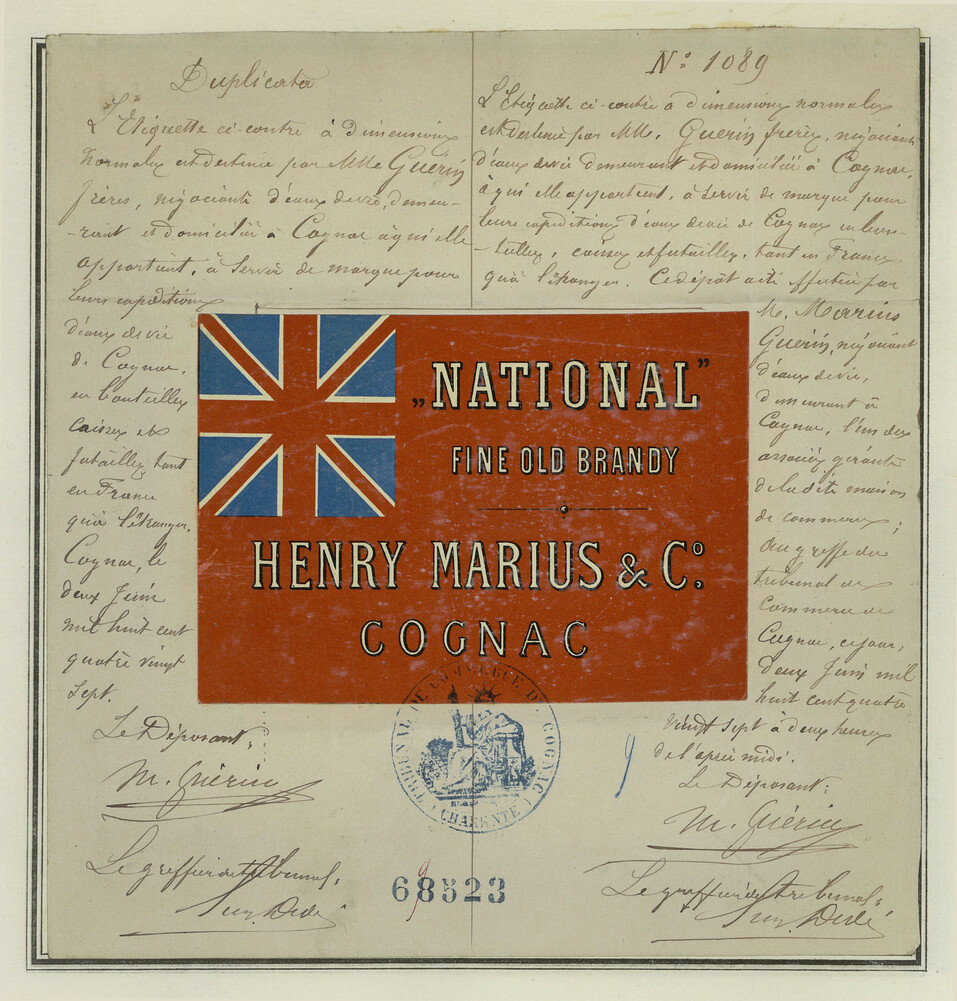 Duplicata
L'Etiquette ci-contre à dimensions
normales est destinée par MM. Guérin
frères, négociants d'eaux de vie, demeu-
-rant et domiciliés à Cognac à qui elle
appartient, à servir de marque pour
leurs expéditions
d'eaux de vie
de Cognac,
en bouteilles
caisses et
futailles, tant
en France
qu'à l'étranger.
Cognac, le
deux Juin
mil huit cent
quatre vingt
sept.
Le Déposant,
M. Guérin
Le greffier du tribunal,
N° 1089
L'Etiquette ci-contre à dimensions normales
est destinée par MM. Guérin frères, négociants
d'eaux de vie demeurant et domiciliés à Cognac,
à qui elle appartient, à servir de marque pour
leurs expéditions d'eaux de vie de Cognac en bou-
-teilles, caisses et futailles, tant en France
qu'à l'étranger. Ce dépôt a été effectué par
M. Marius
Guérin, négociant
d'eaux de vie,
demeurant à
Cognac, l'un des
associés gérants
de la dite maison
de commerce;
au greffe du
tribunal de
Commerce de
Cognac, ce jour,
deux Juin mil
huit cent quatre
vingt sept à deux heures
de l'après midi.
Le Déposant:
M. Guérin
Le greffier du tribunal,
„NATIONAL”
FINE OLD BRANDY
HENRY MARIUS & Cº:
COGNAC
TRIBUNAL DE COMMERCE DE COGNAC
(CHARENTE)
9
9
68523